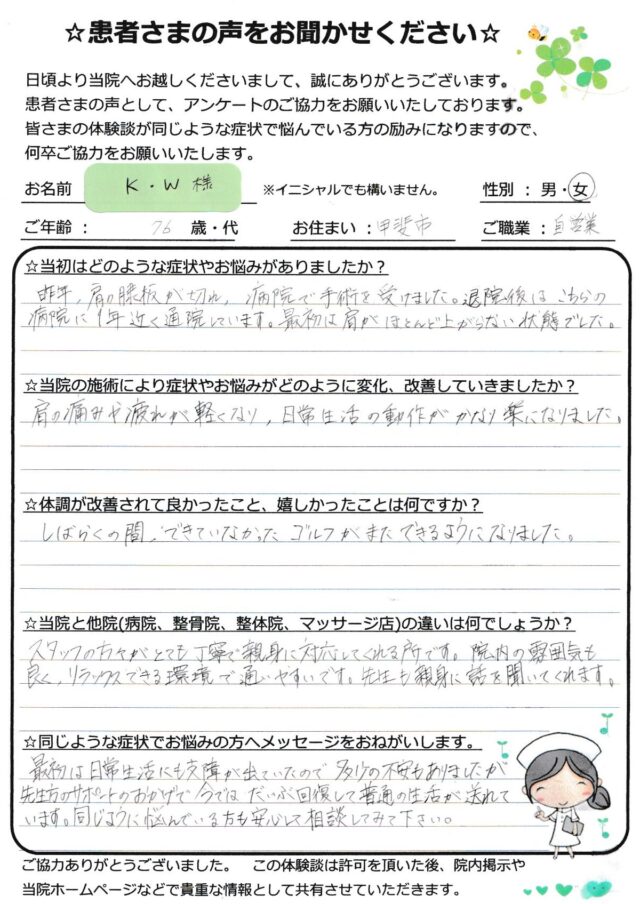 ☆患者さまの声をお聞かせください☆
日頃より当院へお越しくださいまして、誠にありがとうございます。
患者さまの声として、アンケートのご協力をお願いいたしております。
皆さまの体験談が同じような症状で悩んでいる方の励みになりますので、
何卒ご協力をお願いいたします。
お名前 K・W 様 ※イニシャルでも構いません。 性別：男・女
ご年齢： 76 歳・代 お住まい：甲斐市 ご職業：自営業
☆当初はどのような症状やお悩みがありましたか？
昨年、肩の腱板が切れ、病院で手術を受けました。退院後はこちらの
病院に1年近く通院しています。最初は肩がほとんど上がらない状態でした。
☆当院の施術により症状やお悩みがどのように変化、改善していきましたか？
肩の痛みや疲れが軽くなり、日常生活の動作がかなり楽になりました。
☆体調が改善されて良かったこと、嬉しかったことは何ですか？
しばらくの間、できていなかったゴルフがまたできるようになりました。
☆当院と他院(病院、整骨院、整体院、マッサージ店)の違いは何でしょうか？
スタッフの方々がとても丁寧で親身に対応してくれる所です。院内の雰囲気も
良く、リラックスできる環境で通いやすいです。先生も親身に話を聞いてくれます。
☆同じような症状でお悩みの方へメッセージをおねがいします。
最初は日常生活にも支障が出ていたので多少の不安もありましたが
先生方のサポートのおかげで今ではだいぶ回復して普通の生活が送れて
います。同じように悩んでいる方も安心して相談してみて下さい。
ご協力ありがとうございました。 この体験談は許可を頂いた後、院内掲示や
当院ホームページなどで貴重な情報として共有させていただきます。